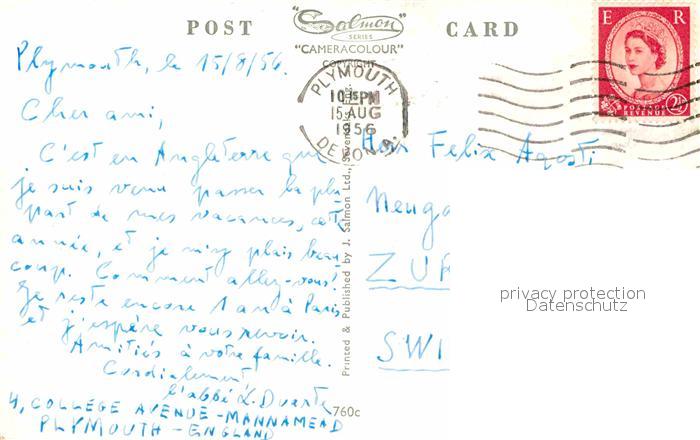 POST CARD
Salmon
SERIES
"CAMERACOLOUR"
COPYRIGHT
E R
POSTAGE
REVENUE
2½
PLYMOUTH
10 15 PM
15 AUG
1956
DEVON
Plymouth, le 15/8/56.
Cher ami,
C'est en Angleterre que
je suis venu passer la plu
part de mes vacances, cette
année, et je m'y plais beau
coup. Comment allez-vous?
Je reste encore 1 an à Paris
et j'espère vous revoir.
Amitiés à votre famille.
Cordialement,
l'abbé L. Duarte
4, COLLEGE AVENUE - MANNAMEAD
PLYMOUTH - ENGLAND
Printed & Published by J. Salmon Ltd., Sevenoaks
760c
Herr Felix Agosti
Neuga
ZUR
SWI
privacy protection
Datenschutz